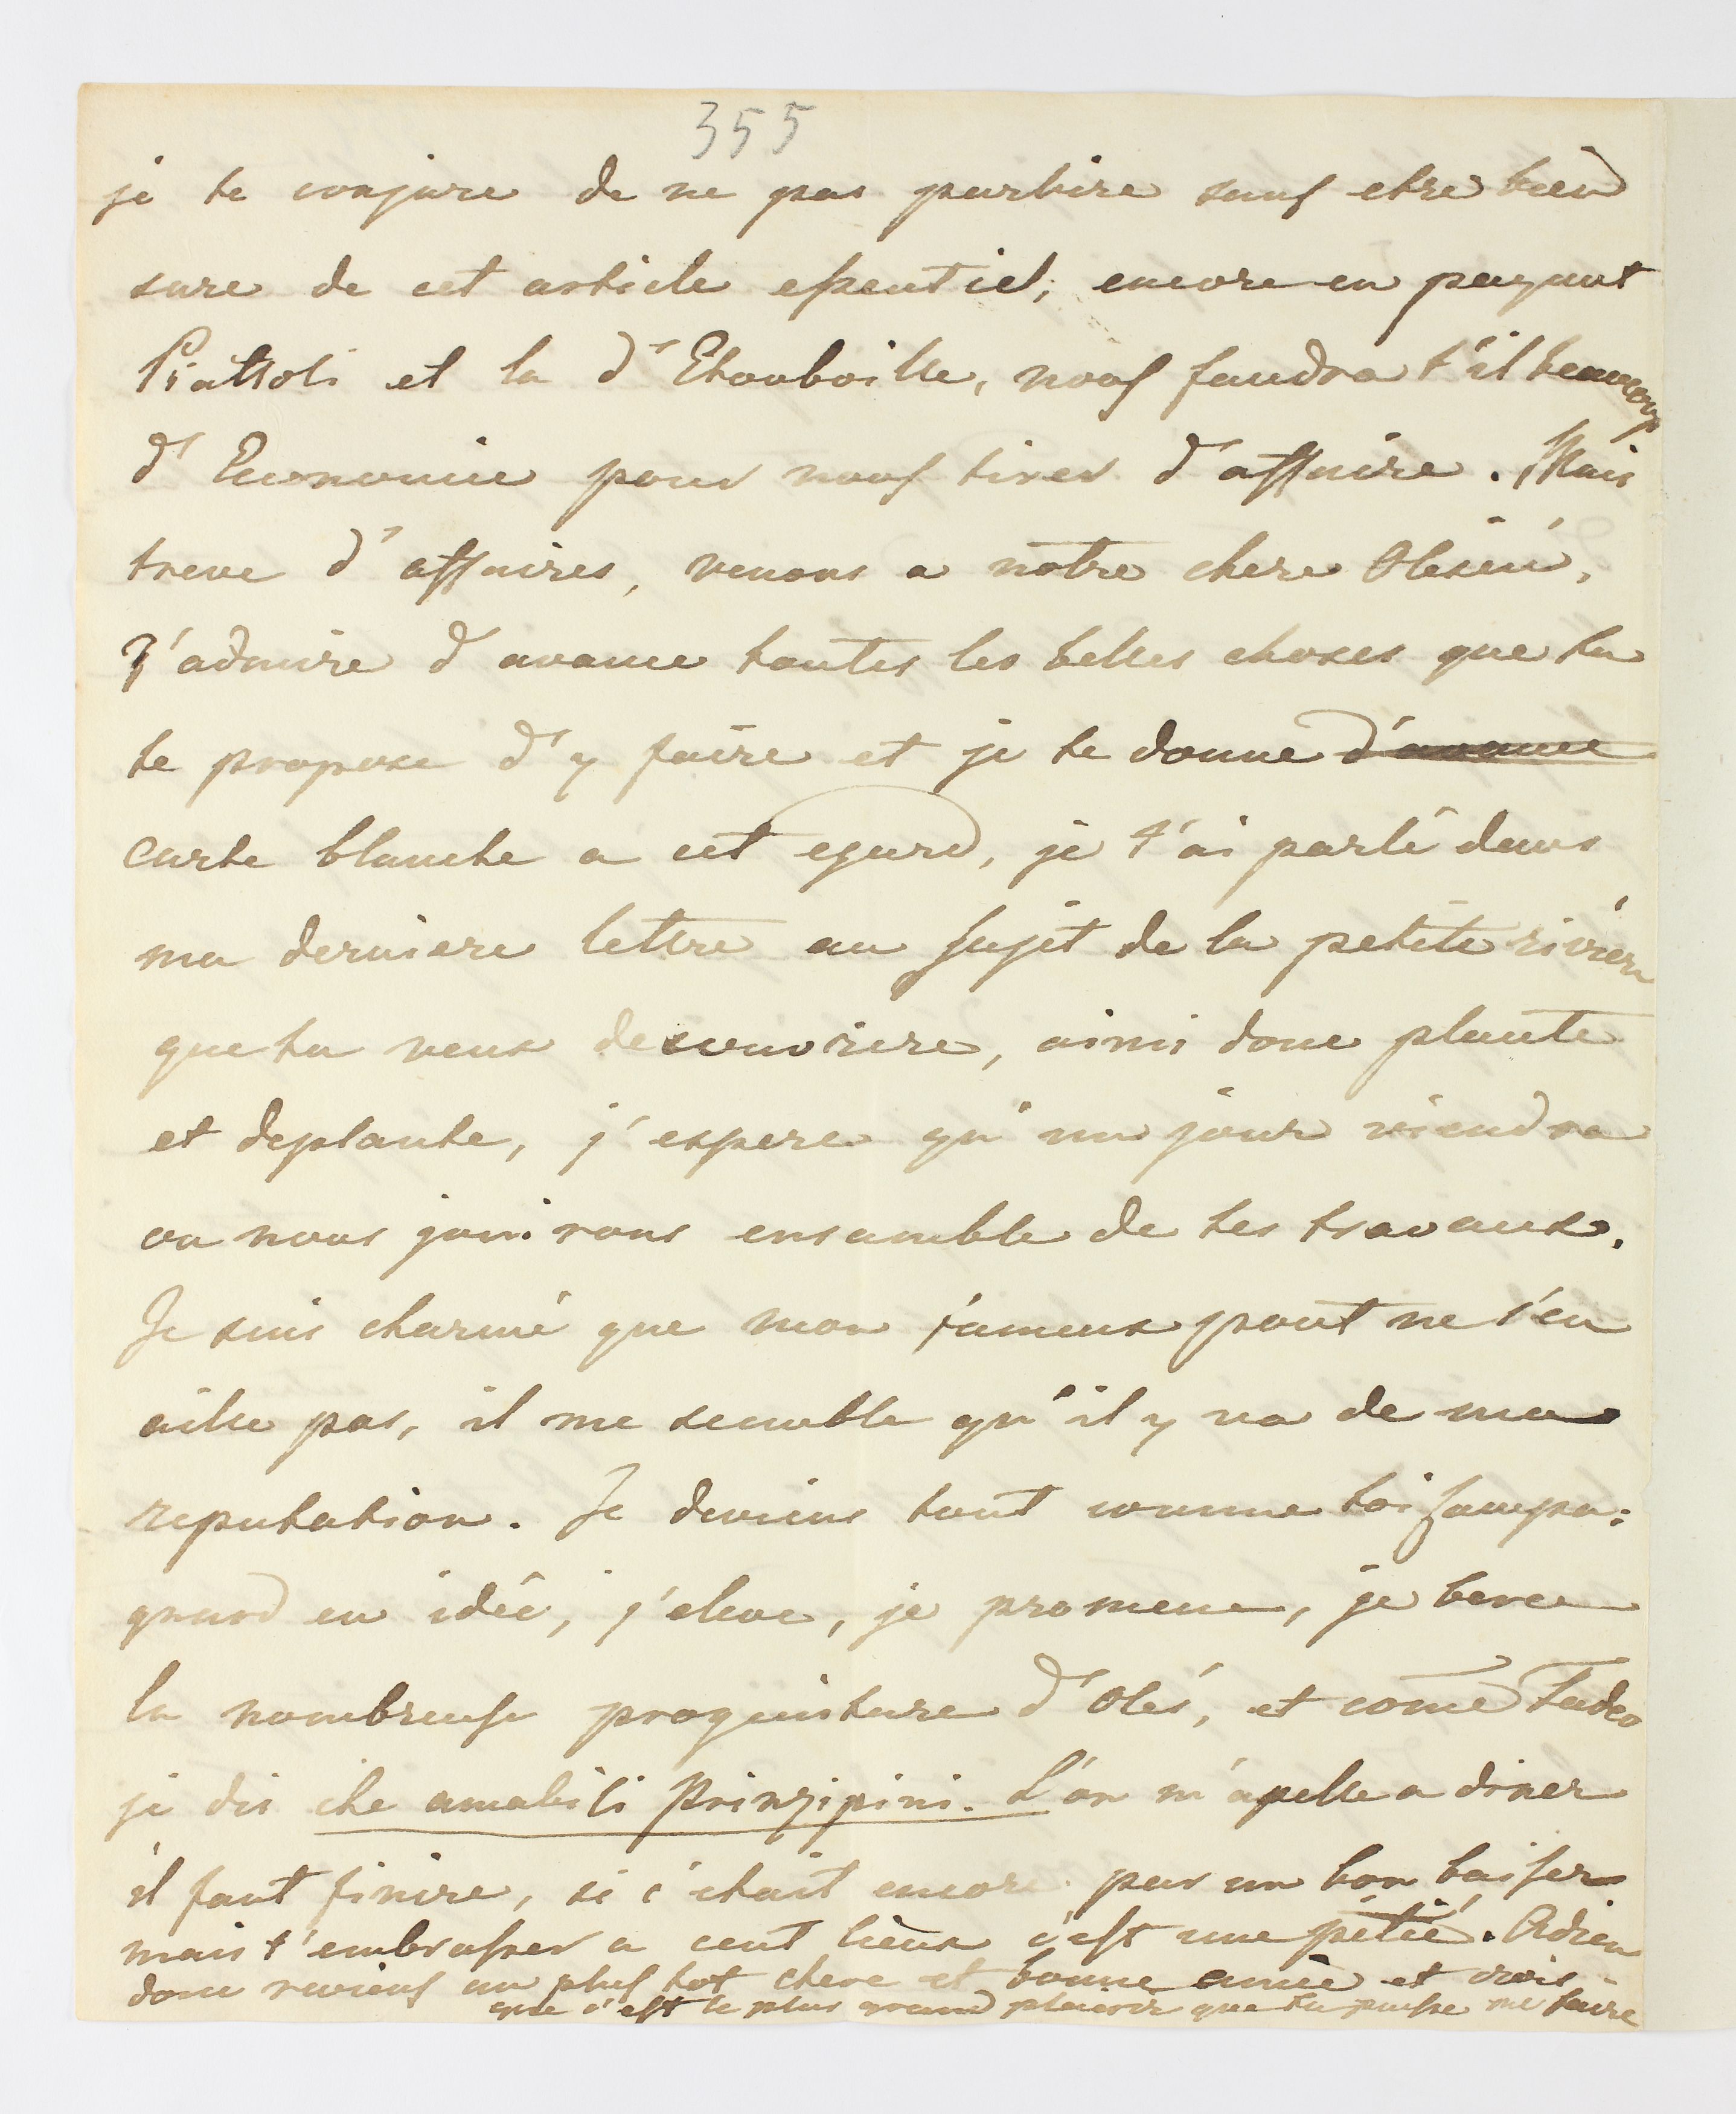 355
je te conjure de ne pas partire sans etre bien
sure de cet article essentiel, encore en payant
Piattoli et la d'Etouboille, nous faudra t'il beaucoup
d'Economie pour nous tirer d'affaire. Mais
treve d'affaires, venons a notre chere Olesin,
J'admire d'avance toutes les belles choses que tu
te propose d'y faire et je te donne d'avance
carte blanche a cet egard, je t'ai parlé dans
ma derniere lettre au sujet de la petite rivier
que tu veux decouvrire, ainsi donc plante
et deplante, j'espere qu'un jour viendra
ou nous jouirons ensamble de tes travaux.
Je suis charmé que mon fameux pont ne s'en
aille pas, il me semble qu'il y va de ma
reputation. Je deviens tout comme toi campa:
gnard en idée, j'eleve, je promene, je berce
la nombreuse progeniture d'Olés, et come Tadeo
je dis che amabili Prinzipini. L'on m'apelle a diner
il faut finire, si c'etoit encore par un bon baiser
mais t'embrasser a cent lieux c'est une pitié. Adieu
donc reviens au plus tot chere et bonne amie et crois
que c'est le plus grand plaisir que tu puisse me faire